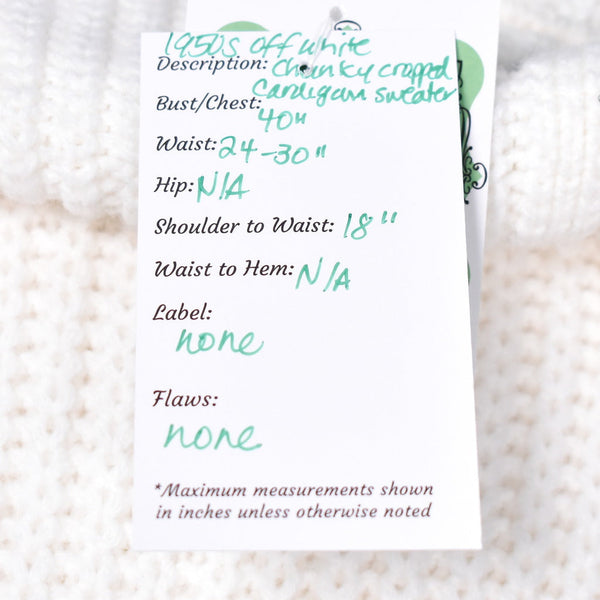 1950s off white
Description: chunky cropped
cardigan sweater
Bust/Chest: 40"
Waist: 24-30"
Hip: N/A
Shoulder to Waist: 18"
Waist to Hem: N/A
Label:
none
Flaws:
none
*Maximum measurements shown
in inches unless otherwise noted